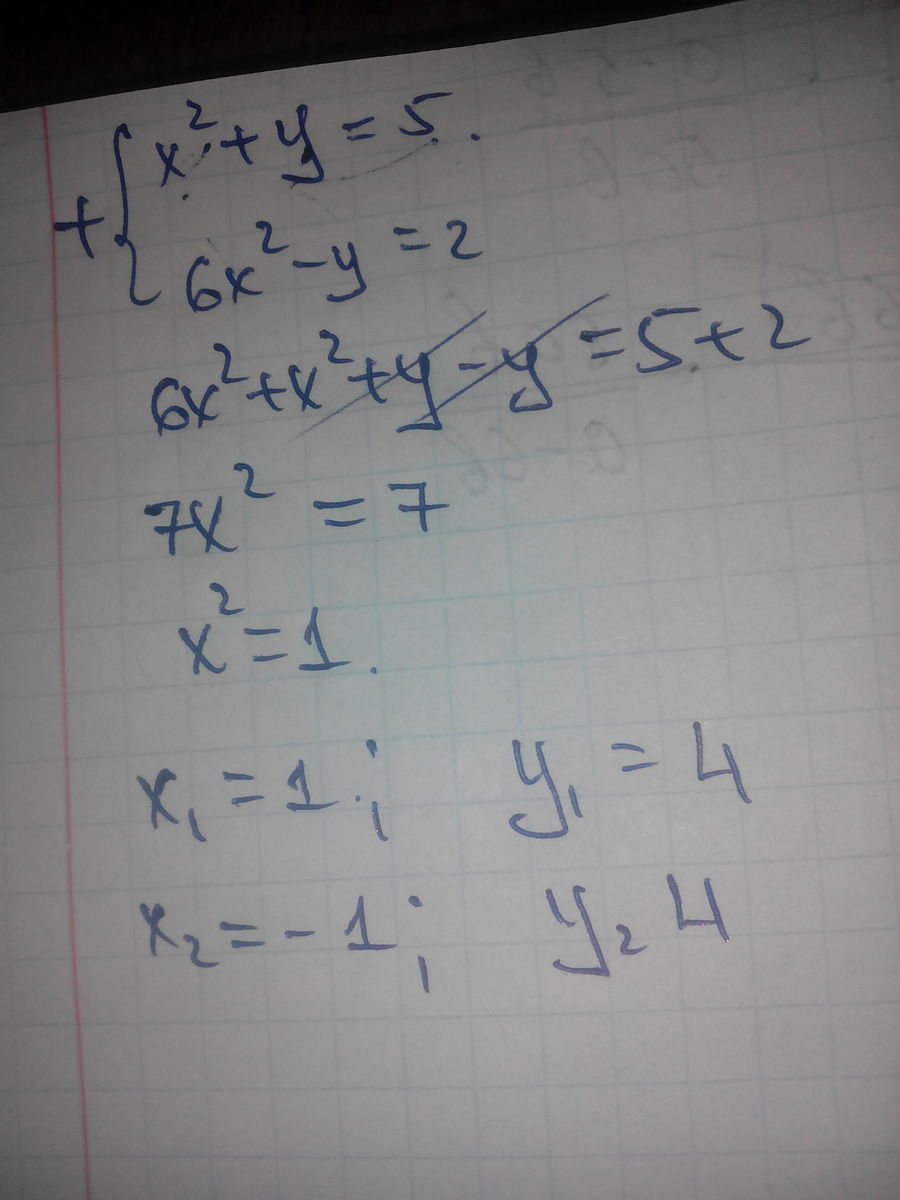 + { x² + y = 5.
6x² - y = 2
6x² + x² + y - y = 5 + 2
7x² = 7
x² = 1.
x₁ = 1.; y₁ = 4
x₂ = - 1; y₂ 4